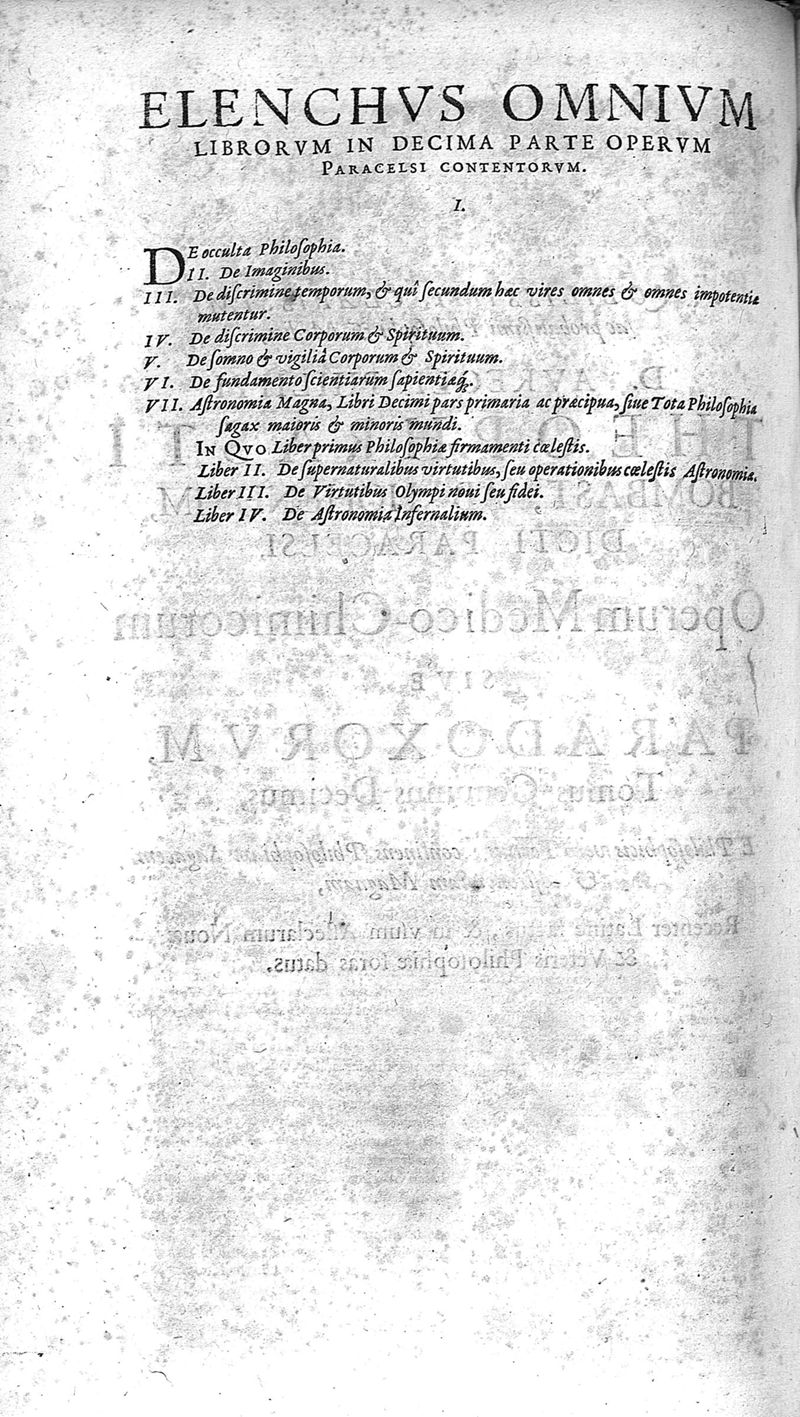 ELENCHVS OMNIVM
LIBRORVM IN DECIMA PARTE OPERVM
PARACELSI CONTENTORVM.
I.
DE occulta Philoſophia.
II. De Imaginibus.
III. De diſcrimine temporum, & quî ſecundum hæc vires omnes & omnes impotentiæ
mutentur.
IV. De diſcrimine Corporum & Spirituum.
V. De ſomno & vigiliâ Corporum & Spirituum.
VI. De fundamento ſcientiarum ſapientiæq́.
VII. Aſtronomia Magna, Libri Decimi pars primaria ac præcipua, ſiue Tota Philoſophia
ſagax maioris & minoris mundi.
IN QVO Liber primus Philoſophiæ firmamenti cœleſtis.
Liber II. De ſupernaturalibus virtutibus, ſeu operationibus cœleſtis Aſtronomiæ.
Liber III. De Virtutibus Olympi noui ſeu fidei.
Liber IV. De Aſtronomiâ Infernalium.